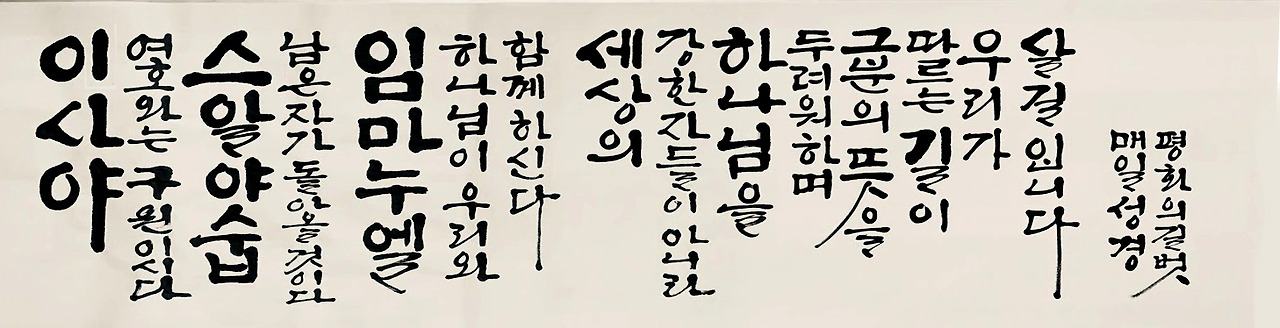 이사야
여호와는 구원이시다
스알야숩
남은 자가 돌아올 것이다
임마누엘
하나님이 우리와
함께 하신다
세상의
강한자들이 아니라
하나님을
두려워하며
그분의 뜻을
따르는 길이
우리가
살 길입니다
매일성경
평화의길벗